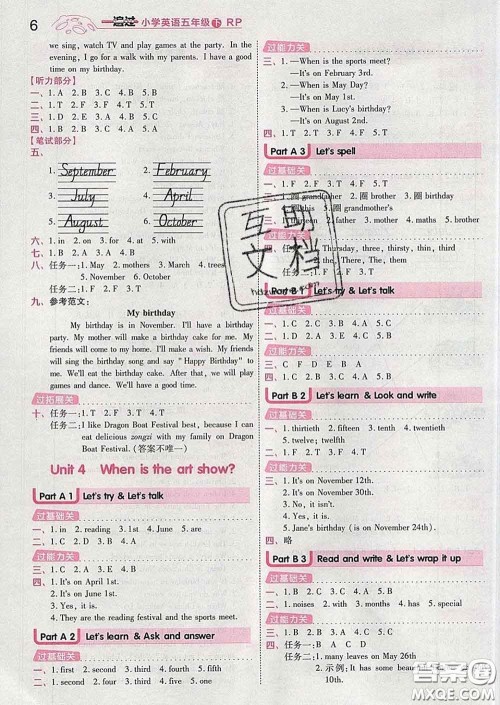 6 一遍过 小学英语五年级 下 RP
we sing, watch TV and play games at the party. In the
evening, I go for a walk with my parents. I have a good
time on my birthday.
【听力部分】
一、1. A 2. B 3. C 4. B 5. A
二、1. B 2. A 3. C 4. B 5. C
三、1. C 2. B 3. A 4. B 5. C
四、1. B 2. A 3. C 4. B 5. A
【笔试部分】
五、
1. September 2. February
3. July 4. April
5. August 6. October
六、1. in 2. on 3. for 4. at 5. with
七、1. B 2. C 3. A 4. C 5. A
八、任务一:1. May 2. mothers 3. March 4. trees
5. November 6. October
任务二:1. F 2. F 3. T 4. T
九、参考范文:
My birthday
My birthday is in November. I'll have a birthday
party. My mother will make a birthday cake for me. My
friends will come to my home. I'll make a wish. My friends
will sing the birthday song and say "Happy Birthday" to
me. We'll eat the birthday cake. After that, we will play
games and dance. We'll have a good time.
过拓展关
十、任务一:1. T 2. F 3. T 4. T
任务二:I like Dragon Boat Festival best, because I can
eat delicious zongzi with my family on Dragon
Boat Festival. (答案不唯一)
Unit 4 When is the art show?
Part A 1 Let's try & Let's talk
过基础关
一、1. in 2. reading 3. 1st 4. June 5. are
二、1. B 2. C 3. A 4. C
过能力关
三、1. It's on April 1st.
2. It's on June 1st.
3. Yes, it is.
4. They are the reading festival and the sports meet.
四、1. B 2. A 3. C
Part A 2 Let's learn & Ask and answer
过基础关
一、1. first 2. second 3. third 4. fourth 5. fifth
二、1. second 2. third 3. first 4. fifth 5. fourth
过能力关
三、1. —When is the sports meet?
—It's on February 3rd.
2. —When is May Day?
—It's on May 1st.
3. —When is Lucy's birthday?
—It's on August 2nd.
四、1. T 2. T 3. F 4. F 5. T
Part A 3 Let's spell
过基础关
一、1. F 2. T 3. F 4. T 5. F
二、1. 圈 grandfather 2. 圈 brother
4. 圈 this 5. 圈 grandmother's
3. father 4. maths 5. brother
过能力关
Thursday, three, thirsty, thin, third
2. the, There, The, them
Part B 1 Let's try & Let's talk
过基础关
一、1. C 2. C 3. B 4. A 5. C
二、1. C 2. D 3. B 4. A 5. E
过能力关
三、C F D E B A
四、1. B 2. A 3. C 4. A 5. C
Part B 2 Let's learn & Look and write
过基础关
一、1. thirtieth 2. fifteenth 3. twentieth 4. tenth
5. twelve; twelfth
二、1. T 2. F 3. F 4. T
过能力关
三、1. It's on November 12th.
2. It's on November 30th.
3. No, it isn't.
4. Yes, it is.
5. Jane's birthday is on November 24th.
四、略
Part B 3 Read and write & Let's wrap it up
过基础关
一、1. noises 2. with 3. but 4. are
二、1. B 2. C 3. B 4. A 5. A
过能力关
三、任务一:B A C D
任务二:1. on May 26th
互助文档
答案圈
MXQE.COM